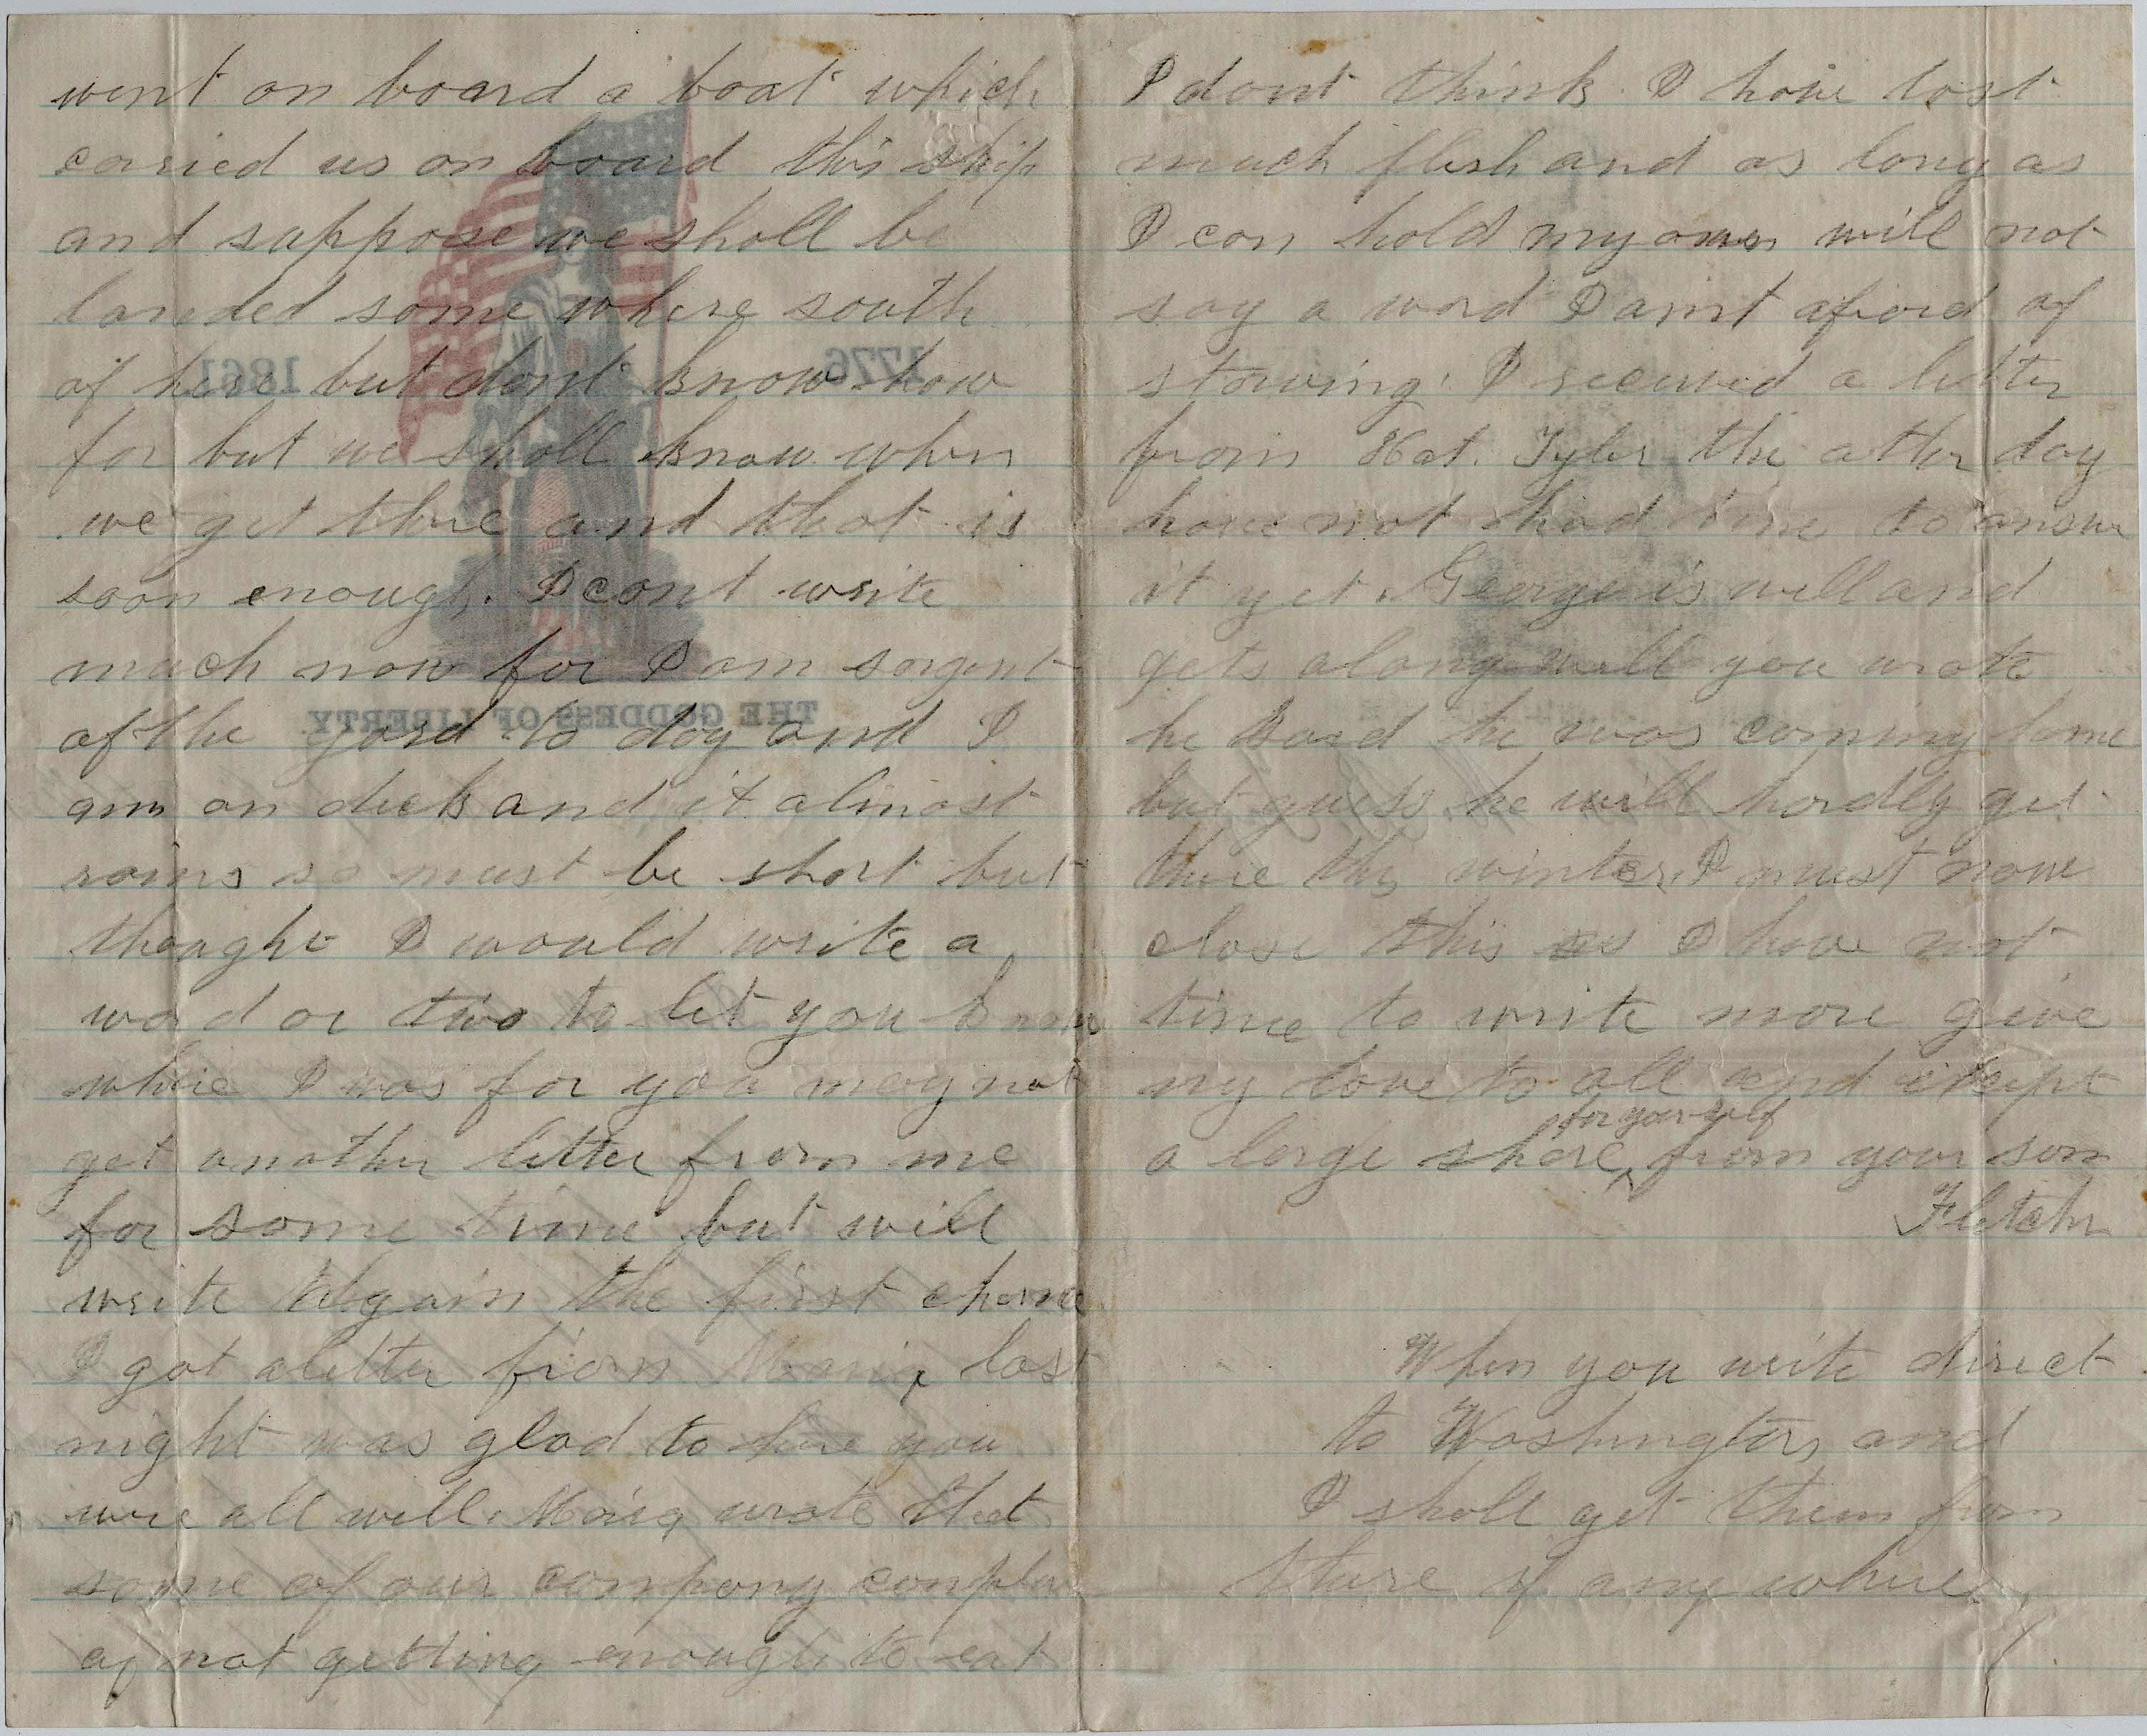 went on board a boat which
carried us on board this ship
and suppose we shall be
landed some where south
of here but dont know how
far but we shall know when
we get there and that is
soon enough. I cant write
much now for I am sargent
of the gard to day and I
am on deck and it almost
rains so must be short but
thought I would write a
word or two to let you know
where I was for you may not
get another letter from me
for some time but will
write again the first chance
I got a letter from Maria last
night was glad to here you
were all well. Maria wrote that
some of our company complain
of not getting enough to eat
1861 1776
THE GODDESS OF LIBERTY.
I dont think I have lost
much flesh and as long as
I can hold my own will not
say a word I aint afraid of
starving. I received a letter
from Hat. Tyler the other day
have not had time to answer
it yet. George is well and
gets along well you wrote
he said he was coming home
but guess he will hardly get
there this winter. I must now
close this as I have not
time to write more give
my love to all and except
for your self
a large share from your son
Fletcher
When you write direct
to Washington and
I shall get them from
there if any where